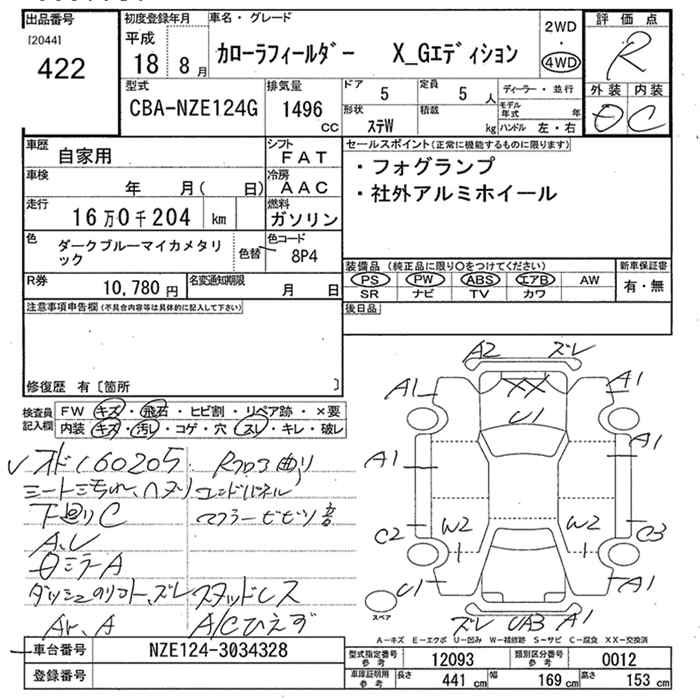 出品番号
[2044]
422
初度登録年月
平成
18 8月
車名・グレード
カローラフィールダー X_Gエディション
2WD
・
4WD
評価点
R
外装 内装
C
型式
CBA-NZE124G
排気量
1496
cc
ドア
5
定員
5 人
形状
ステW
積載
kg
ディーラー・並行
モデル年式 年
ハンドル 左・右
車歴
自家用
シフト
FAT
車検
年 月( 日)
冷房
AAC
走行
16万0千204 km
燃料
ガソリン
色
ダークブルーマイカメタリック
色替
色コード
8P4
R券
10,780 円
名変通知期限
月 日
セールスポイント(正常に機能するものに限ります)
・フォグランプ
・社外アルミホイール
装備品(純正品に限り○をつけてください)
PS PW ABS エアB AW
SR ナビ TV カワ
新車保証書
有・無
後日品
注意事項申告欄(不具合内容等は具体的に記入して下さい)
修復歴 有〔箇所 〕
検査員記入欄
FW キズ・飛石・ヒビ割・リペア跡・×要
内装 キズ・汚れ・コゲ・穴・スレ・キレ・破レ
160205
Rフロア曲り
エンドパネル
下廻りC
マフラービビリ音
A、U
ミラーA
ズレ
スタッドレス
A
A/Cひえず
A2 ズレ
A1 XX A1
U1
A1 A1
C2 W2 W2 C3
U1 A1
ズレ UA3 A1
スペア
A−キズ E−エクボ U−凹み W−補修跡 S−サビ C−腐食 XX−交換済
車台番号
NZE124-3034328
登録番号
型式指定番号
参考
12093
類別区分番号
参考
0012
車庫証明用
参考
長さ 441 cm
幅 169 cm
高さ 153 cm